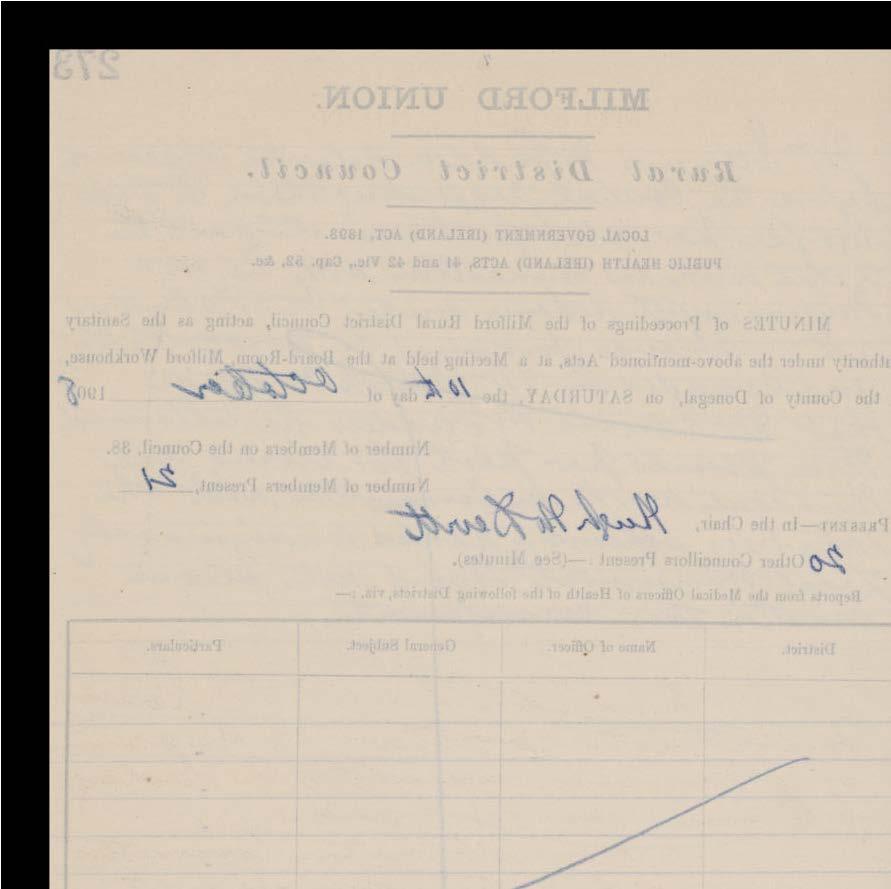 273
MILFORD UNION.
Rural District Council.
LOCAL GOVERNMENT (IRELAND) ACT, 1898.
PUBLIC HEALTH (IRELAND) ACTS, 41 and 42 Vic., Cap. 52, &c.
MINUTES of Proceedings of the Milford Rural District Council, acting as the Sanitary
uthority under the above-mentioned Acts, at a Meeting held at the Board-Room, Milford Workhouse,
the County of Donegal, on SATURDAY, the 10th day of October 1908
Number of Members on the Council, 38.
Number of Members Present, 21
PRESENT—In the Chair, Hugh McDevitt
20 Other Councillors Present :—(See Minutes).
Reports from the Medical Officers of Health of the following Districts, viz. :—
District. Name of Officer. General Subject. Particulars.